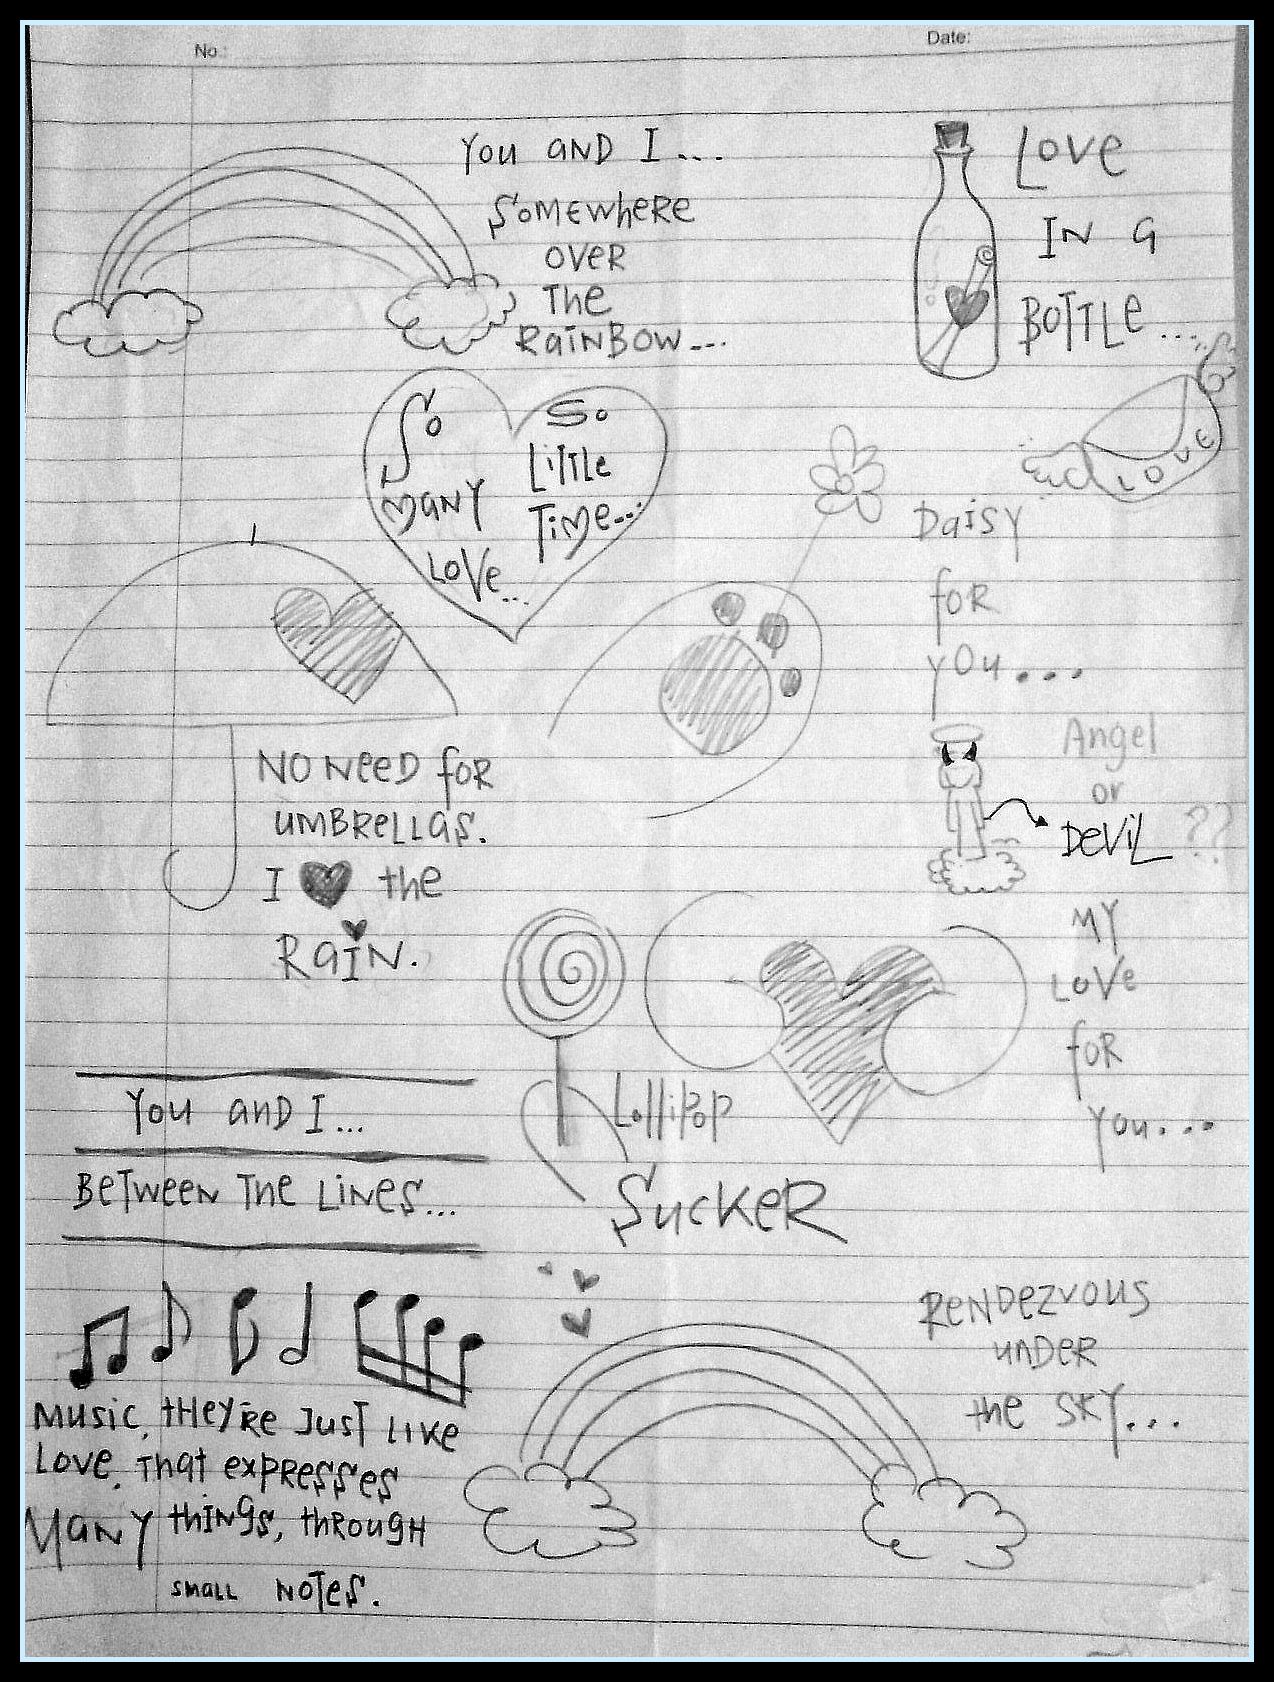 No:
Date:
You AND I....
SOMEWHERE
OVER
THE
RAINBOW...
LOVE
IN A
BOTTLE....
LOVE
So
MANY
LOVE...
So
LITTLE
TIME...
Daisy
for
you...
Angel
or
DEVIL ??
NO NEED FOR
UMBRELLAS.
I ♥ the
RAIN.
MY
LOVE
FOR
You...
Lollipop
SUCKER
You and I...
BETWEEN THE LINES...
RENDEZVOUS
UNDER
the SKY...
MUSIC, THEY'RE JUST LIKE
LOVE. THAT EXPRESSES
MANY THINGS, THROUGH
SMALL NOTES.